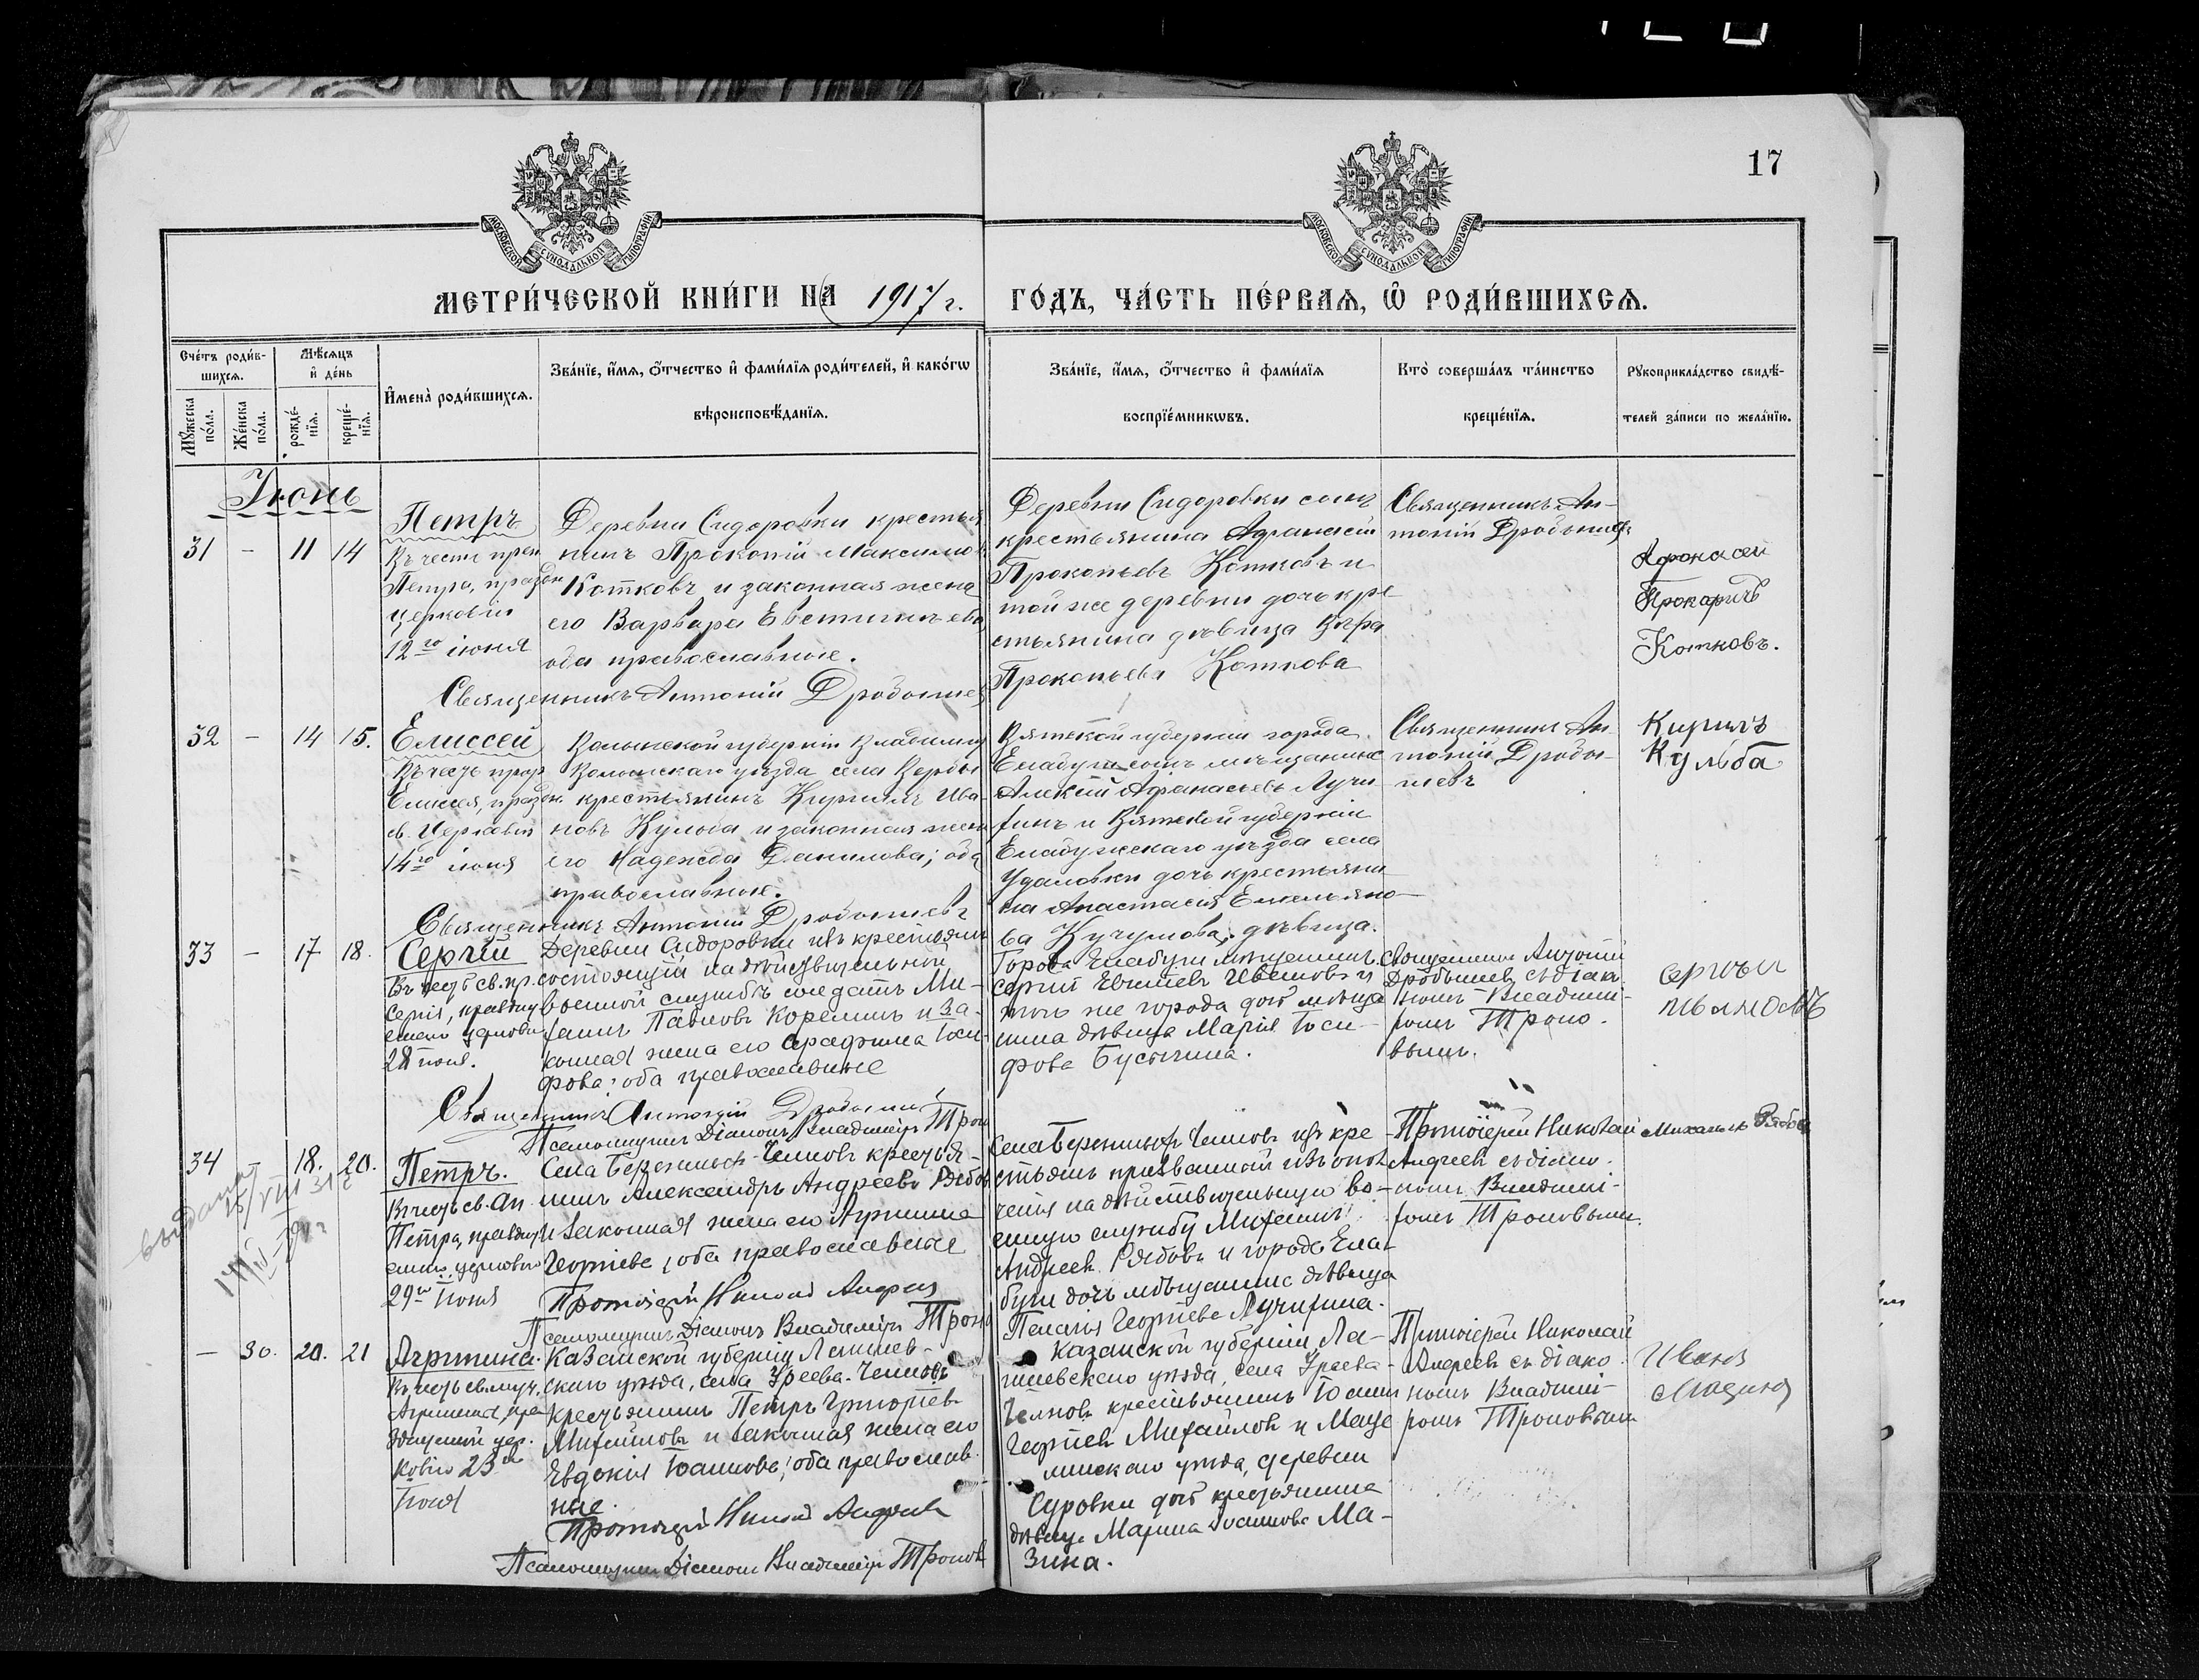 17
МОСКОВСКОЙ СѴНОДАЛЬНОЙ ТИПОГРАФІИ
МОСКОВСКОЙ СѴНОДАЛЬНОЙ ТИПОГРАФІИ
МЕТРИ́ЧЕСКОЙ КНИ́ГИ НА 1917 г. ГО́ДЪ, ЧА́СТЬ ПЕ́РВАѦ, Ѽ РОДИ́ВШИХСѦ.
Сче́тъ роди́в-
шихсѧ.
Мѣ́сѧцъ
и҆ де́нь
Мꙋ́жеска
по́ла.
Же́нска
по́ла.
рожде́-
нїѧ.
креще́-
нїѧ.
И҆мена̀ роди́вшихсѧ.
Зва́нїе, и҆́мѧ, ѻ҆́тчество и҆ фами́лїѧ роди́телей, и҆ како́гѡ
вѣроисповѣ́данїѧ.
Зва́нїе, и҆́мѧ, ѻ҆́тчество и҆ фами́лїѧ
воспрїе́мникѡвъ.
Кто̀ соверша́лъ та́инство
креще́нїѧ.
Рꙋкоприкла́дство свидѣ́-
телей за́писи по жела́нїю.
Іюнь
31 – 11 14
Петръ
Въ честь прен
Петра, праздн
церковію
12го іюня
Деревни Сидоровки крестья
нинъ Прокопій Максимов
Котковъ и законная жена
его Варвара Евстигнѣева
оба православные.
Священникъ Антоній Дробышев
Деревни Сидоровки сынъ
крестьянина Афанасій
Прокопьевъ Котковъ и
той же деревни дочь кре
стьянина дѣвица Вѣра
Прокопьева Коткова
Священникъ Ан-
тоній Дробышев
Афонасей
Котковъ.
32 – 14 15.
Елиссей
Въ честь прор
Елиссея, праздн
св. Церковію
14го іюня
Волынской губерніи Владимир
Волынскаго уѣзда села Вербы
крестьянинъ Кириллъ Ива-
новъ Кульба и законная жена
его Надежда Данилова; оба
православные.
Священникъ Антоній Дробышевъ
Вятской губерніи города
Елабуги сынъ мѣщанина
Алексій Афанасьевъ Лучи-
хинъ и Вятской губерніи
Елабужскаго уѣзда села
Удаловки дочь крестьяни
на Анастасія Емельяно-
ва Кучумова, дѣвица.
Священникъ Ан-
тоній Дробы-
шевъ
Кирилъ
Кульба
33 – 17 18.
Сергій
Въ честь св. пр.
Сергія, празднуемаго церковію
28 іюня.
Деревни Сидоровки изъ крестьянъ
состоящій на дѣйствительной
военной службѣ солдатъ Ми-
хаилъ Павловъ Корелинъ и за-
конная жена его Серафима Іоси-
фова; оба православные
Священникъ Антоній Дробышевъ
Псаломщикъ Діаконъ Владиміръ Троно
Города Елабуги мѣщанинъ
того же города дочь мѣща
нина дѣвица Марія Іоси-
фова Бусыгина.
Священникъ Антоній
Дробышевъ съ діако
номъ Владимі-
ромъ Троно-
вымъ.
34 – 18. 20.
Петръ.
Въ честь св. Ап
Петра, праздну
емаго церковію
29го Іюня
Села Бережныхъ Челновъ крестья-
нинъ Александръ Андреевъ Рябов
и законная жена его
Георгіева; оба православные
Протоіерей Николай Андреев
Псаломщикъ Діаконъ Владиміръ Троно
Села Бережныхъ Челновъ изъ кре
стьянъ призванный изъ опол
ченія на дѣйствительную во-
енную службу Михаилъ
Андреевъ Рябовъ и города Ела-
буги дочь мѣщанина дѣвица
Пелагія Георгіева Лучихина.
Протоіерей Николай
Андреевъ съ діако-
номъ Владимі-
ромъ Троновымъ.
– 30. 20. 21
Агриппина.
Въ честь св. муч.
Агриппины, пра
зднуемой цер-
ковію 23го
Іюня
Казанской губерніи Лаишев-
скаго уѣзда, села Урѣева-Челновъ
крестьянинъ Петръ Григорьевъ
Михайловъ и законная жена его
Евдокія Іоаннова; оба православ-
ные.
Протоіерей Николай Андреевъ
Псаломщикъ Діаконъ Владиміръ Тронов
Казанской губерніи Ла-
ишевскаго уѣзда, села Урѣева-
Челновъ крестьянинъ Іоаннъ
Георгіевъ Михайловъ и Мензе
линскаго уѣзда, деревни
Суровки дочь крестьянина
дѣвица Марина Іоаннова Ма-
зина.
Протоіерей Николай
Андреевъ съ діако-
номъ Владимі-
ромъ Троновымъ